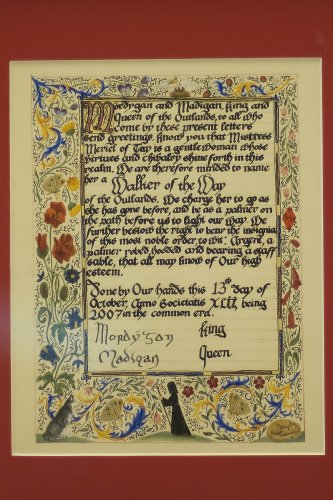 Mordygan and Madigan, King and
Queen of the Outlands, to all who
come by these present letters
send greetings. Know you that Mistress
Meriel of Tap is a gentle woman whose
virtues and chivalry shine forth in this
realm. We are therefore minded to name
her a Walker of the Way
of the Outlands. We charge her to go as
she has gone before, and be as a palmer on
the path before us to light our Way. We
further bestow the right to bear the insignia
of this most noble order, to wit: Argent, a
palmer robed hooded and bearing a staff
sable, that all may know of Our high
esteem.
Done by Our hands this 13th Day of
October, Anno Societatis XLII, being
2007 in the common era.
Mordy'gan King
Madigan Queen